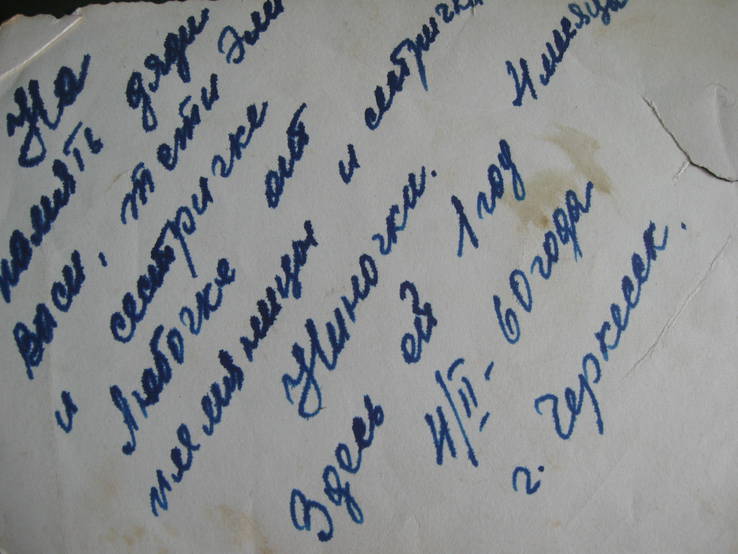 На
память дяди
Васи, тёти Эми
и сестричке
Любочке от
племянницы и сестрички
Ниночки.
Здесь ей 1 год 4 месяца
4/II - 60 года
г. Черкесск.